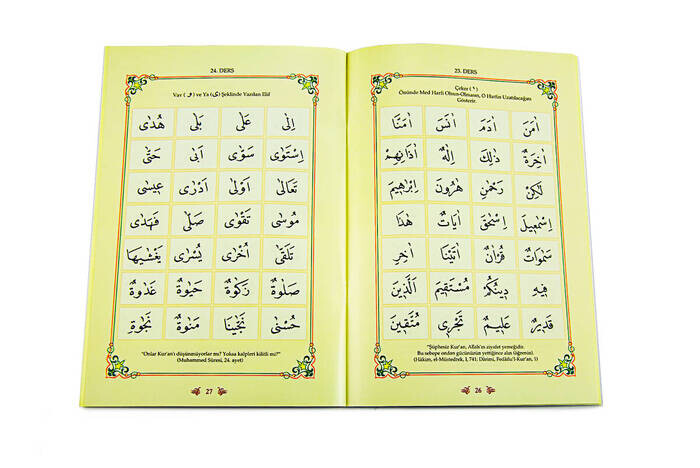 23. DERS
Çeker ( ٰ )
Önünde Med Harfi Olsun-Olmasın, O Harfin Uzatılacağını
Gösterir.
اٰمَنَ اٰدَمَ اٰنَسَ اٰمَنَّا
اٰخِرَةٌ ذٰلِكَ اِلٰهٌ اٰذَانِهِمْ
لٰكِنْ رَحْمٰنِ هٰرُونَ اِبْرٰهِيمَ
اِسْمٰعِيلَ اِسْحٰقَ اٰيَاتٌ هٰذَا
سَمٰوَاتٌ قُرْاٰنٌ اٰتَيْنَا اٰخِرِ
فِيهِ دِينُكُمْ مُسْتَقِيمَ اَلَّذِينَ
قَدِيرٌ عَلِيمٌ تَجْرِى مُتَّقِينَ
"Şüphesiz Kur'an, Allah'ın ziyafet yemeğidir.
Bu sebepe ondan gücünüzün yettiğince alın (öğrenin).
(Hâkim, el-Müstedrek, I, 741; Dârimî, Fedâilu'l-Kur'an, 1)
26
24. DERS
Vav ( و ) ve Ya (ى) Şeklinde Yazılan Elif
اِلٰى عَلٰى بَلٰى هُدٰى
اِسْتَوٰى سَوّٰى اَبٰى حَتّٰى
تَعَالٰى اَوْلٰى اَدْرٰى عِيسٰى
مُوسٰى تَقْوٰى صَلّٰى فَهَدٰى
تَلَقّٰى اُخْرٰى يُسْرٰى يَغْشٰيهَا
صَلٰوةٌ زَكٰوةٌ حَيٰوةٌ غَدٰوةٌ
حُسْنٰى نَجّٰينَا مَنٰوةٌ نَجٰوةٌ
"Onlar Kur'an'ı düşünmüyorlar mı? Yoksa kalpleri kilitli mi?"
(Muhammed Sûresi, 24. ayet)
27